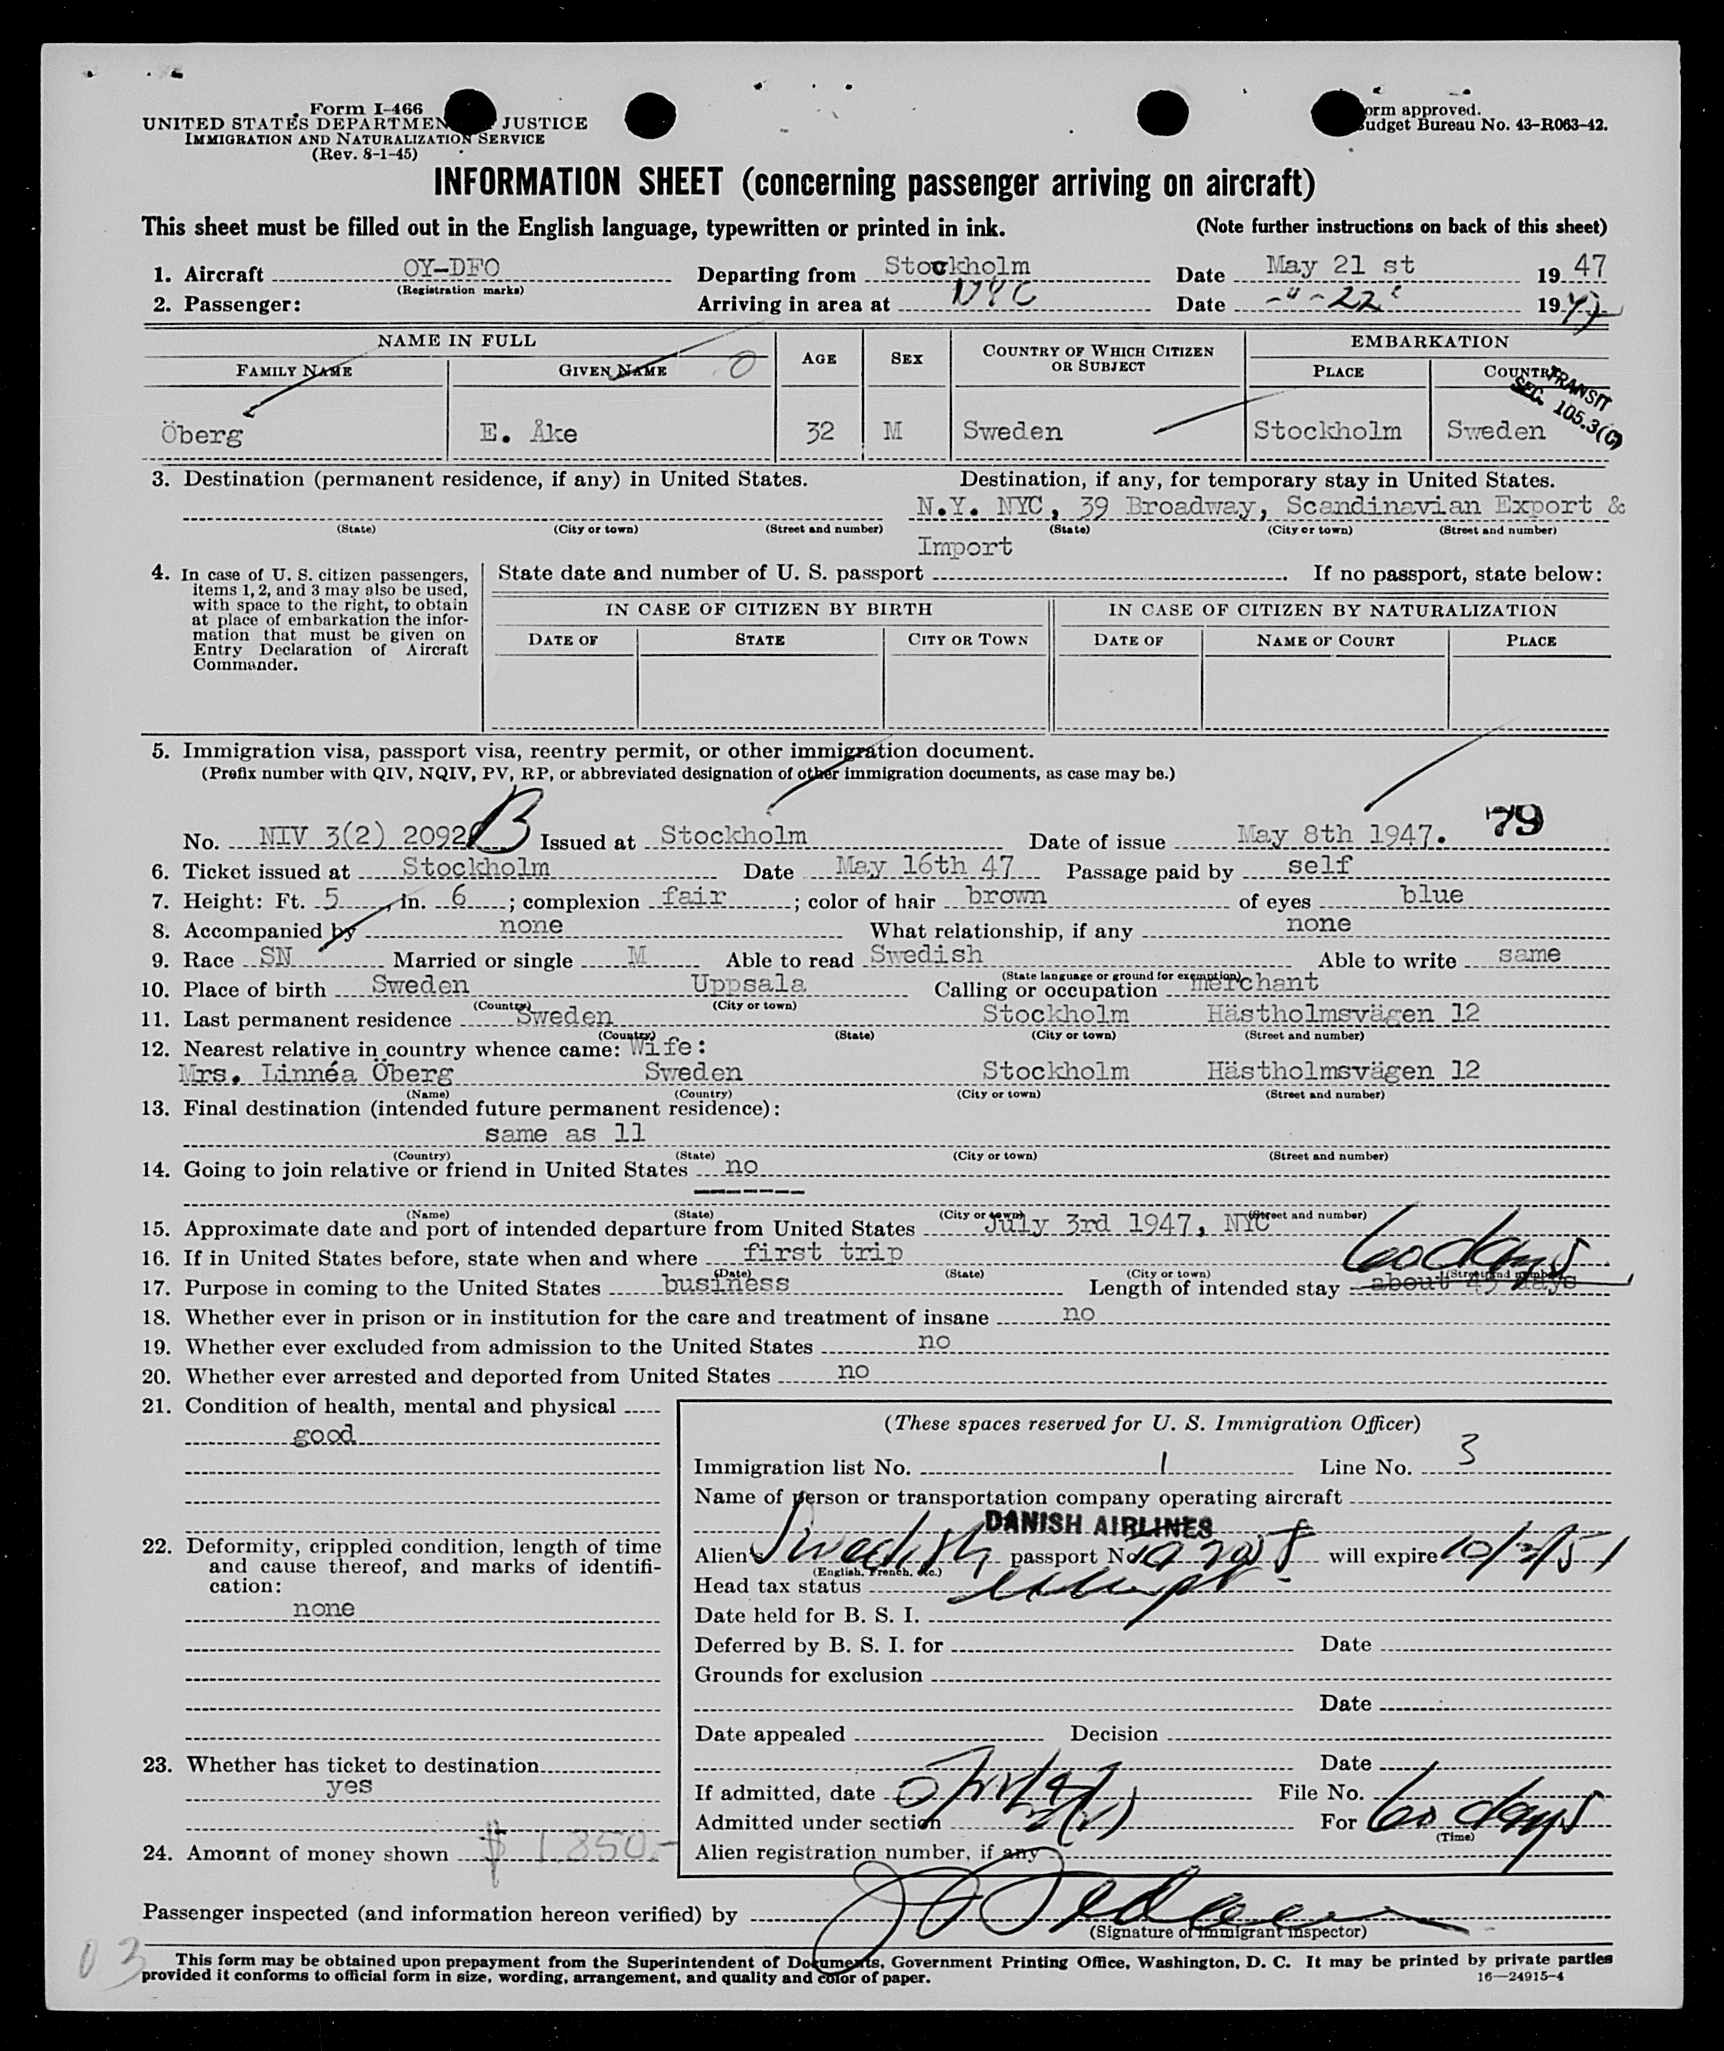 Form I-466
UNITED STATES DEPARTMEN JUSTICE
IMMIGRATION AND NATURALIZATION SERVICE
(Rev. 8-1-45)
orm approved.
udget Bureau No. 43-R063-42.
INFORMATION SHEET (concerning passenger arriving on aircraft)
This sheet must be filled out in the English language, typewritten or printed in ink. (Note further instructions on back of this sheet)
1. Aircraft OY-DFO Departing from Stockholm Date May 21 st 1947
(Registration marks)
2. Passenger: Arriving in area at NYC Date -"-22 1947
NAME IN FULL AGE SEX COUNTRY OF WHICH CITIZEN OR SUBJECT EMBARKATION
FAMILY NAME GIVEN NAME 0 PLACE COUNTRY
TRANSIT
SEC. 105.3(C)
Öberg E. Åke 32 M Sweden Stockholm Sweden
3. Destination (permanent residence, if any) in United States. Destination, if any, for temporary stay in United States.
N.Y. NYC, 39 Broadway, Scandinavian Export &
(State) (City or town) (Street and number) (State) (City or town) (Street and number)
Import
4. In case of U. S. citizen passengers, items 1, 2, and 3 may also be used, with space to the right, to obtain at place of embarkation the information that must be given on Entry Declaration of Aircraft Commander.
State date and number of U. S. passport If no passport, state below:
IN CASE OF CITIZEN BY BIRTH IN CASE OF CITIZEN BY NATURALIZATION
DATE OF STATE CITY OR TOWN DATE OF NAME OF COURT PLACE
5. Immigration visa, passport visa, reentry permit, or other immigration document.
(Prefix number with QIV, NQIV, PV, RP, or abbreviated designation of other immigration documents, as case may be.)
79
No. NIV 3(2) 2092 B Issued at Stockholm Date of issue May 8th 1947.
6. Ticket issued at Stockholm Date May 16th 47 Passage paid by self
7. Height: Ft. 5, in. 6; complexion fair; color of hair brown of eyes blue
8. Accompanied by none What relationship, if any none
9. Race SN Married or single M Able to read Swedish Able to write same
(State language or ground for exemption)
10. Place of birth Sweden Uppsala Calling or occupation merchant
(Country) (City or town)
11. Last permanent residence Sweden Stockholm Hästholmsvägen 12
(Country) (State) (City or town) (Street and number)
12. Nearest relative in country whence came: Wife:
Mrs. Linnéa Öberg Sweden Stockholm Hästholmsvägen 12
(Name) (Country) (City or town) (Street and number)
13. Final destination (intended future permanent residence):
same as 11
(Country) (State) (City or town) (Street and number)
14. Going to join relative or friend in United States no
(Name) (State) (City or town) (Street and number)
15. Approximate date and port of intended departure from United States July 3rd 1947, NYC
16. If in United States before, state when and where first trip
(Date) (State) (City or town) (Street and number)
60 days
17. Purpose in coming to the United States business Length of intended stay about 45 days
18. Whether ever in prison or in institution for the care and treatment of insane no
19. Whether ever excluded from admission to the United States no
20. Whether ever arrested and deported from United States no
21. Condition of health, mental and physical
good
22. Deformity, crippled condition, length of time and cause thereof, and marks of identification:
none
23. Whether has ticket to destination
yes
24. Amount of money shown $ 1.850.-
(These spaces reserved for U. S. Immigration Officer)
Immigration list No. 1 Line No. 3
Name of person or transportation company operating aircraft
DANISH AIRLINES
Alien's Swedish passport No. will expire
(English, French, etc.)
Head tax status exempt
Date held for B. S. I.
Deferred by B. S. I. for Date
Grounds for exclusion
Date
Date appealed Decision
Date
If admitted, date File No.
Admitted under section 3(2) For 60 days
(Time)
Alien registration number, if any
Passenger inspected (and information hereon verified) by
(Signature of Immigrant Inspector)
03
This form may be obtained upon prepayment from the Superintendent of Documents, Government Printing Office, Washington, D. C. It may be printed by private parties
provided it conforms to official form in size, wording, arrangement, and quality and color of paper.
16—24915-4